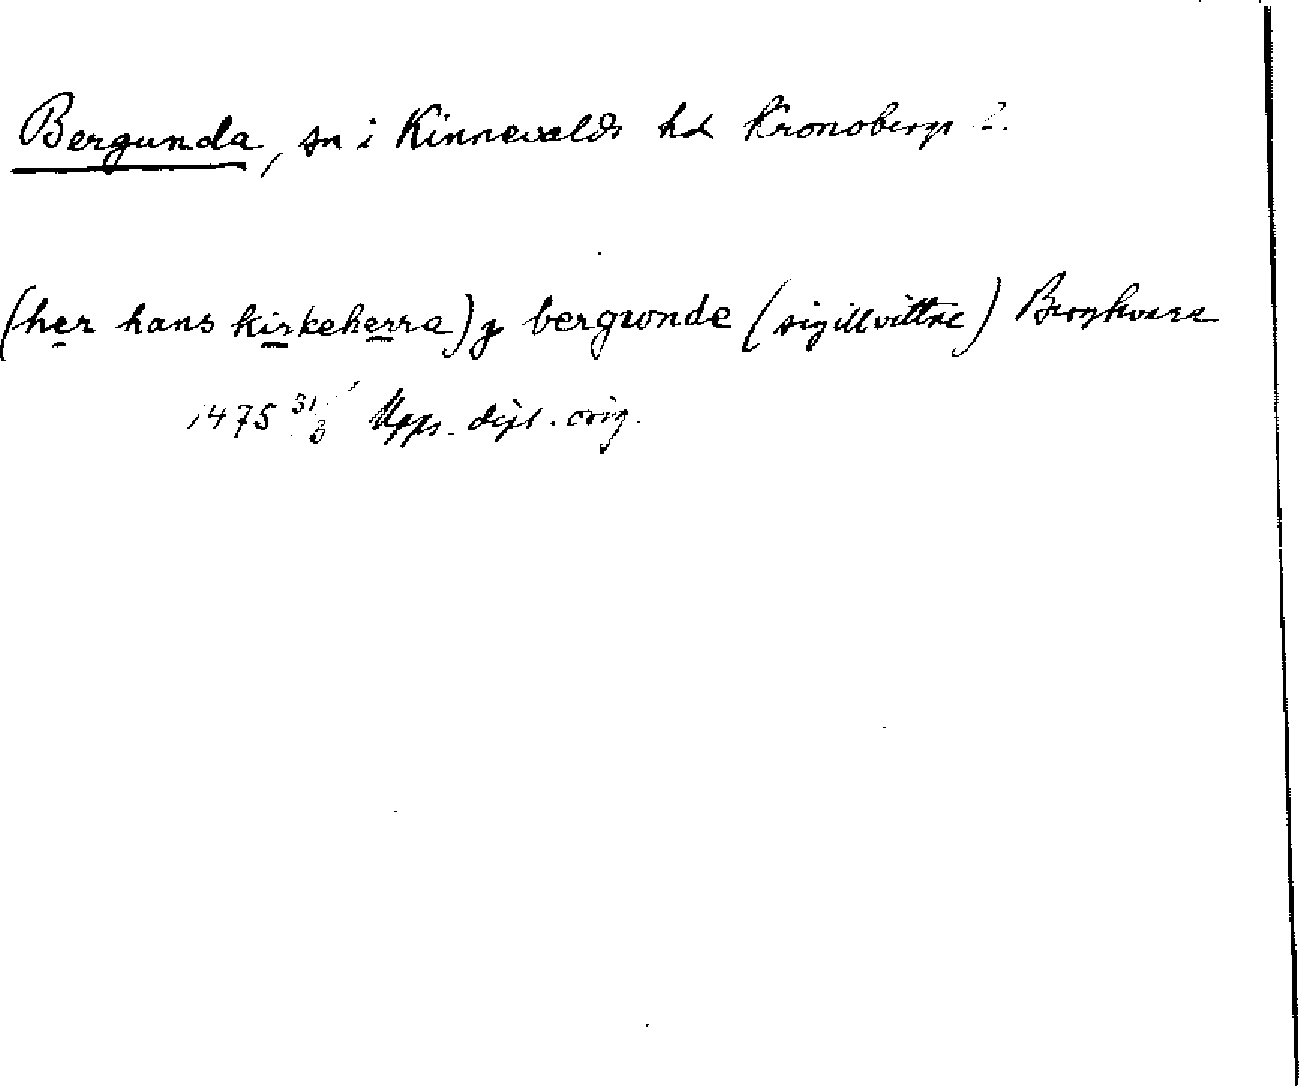 Bergunda, sn i Kinnevalds hd Kronobergs l.
(her hans kirkeherra) j bergwnde (sigillvittne) Bergkvara
1475 31/3 Upps. dipl. orig.